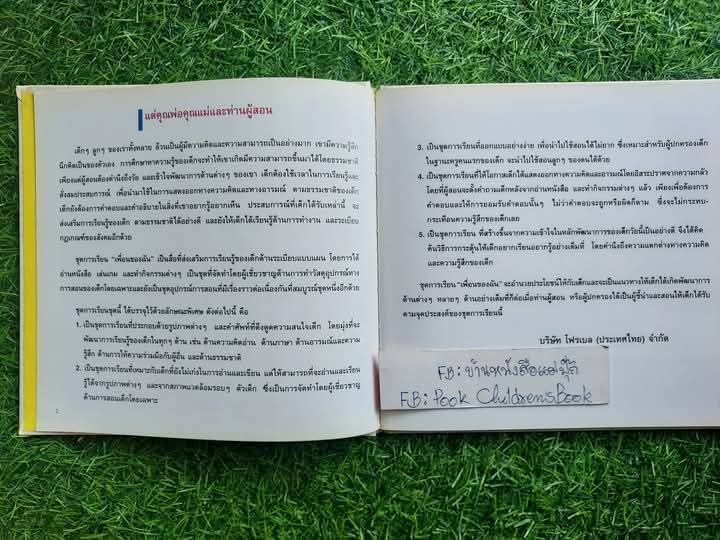 แด่คุณพ่อคุณแม่และท่านผู้สอน
เด็กๆ ลูกๆ ของเราทั้งหลาย ล้วนเป็นผู้มีความคิดและความสามารถเป็นอย่างมาก เขามีความรู้สึก
นึกคิดเป็นของตัวเอง การศึกษาหาความรู้ของเด็กจะทำให้เขาเกิดมีความสามารถขึ้นมาได้โดยธรรมชาติ
เพียงแต่ผู้สอนต้องคำนึงถึงวัย และเข้าใจพัฒนาการด้านต่างๆ ของเขา เด็กต้องใช้เวลาในการเรียนรู้และ
สั่งสมประสบการณ์ เพื่อนำมาใช้ในการแสดงออกทางความคิดและทางอารมณ์ ตามธรรมชาติของเด็ก
เด็กยังต้องการคำตอบและคำอธิบายในสิ่งที่เขาอยากรู้อยากเห็น ประสบการณ์ที่เด็กได้รับเหล่านี้ จะ
ส่งเสริมการเรียนรู้ของเด็ก ตามธรรมชาติได้อย่างดี และยังให้เด็กได้เรียนรู้ด้านการทำงาน และระเบียบ
กฎเกณฑ์ของสังคมอีกด้วย
ชุดการเรียน "เพื่อนของฉัน" เป็นสื่อที่ส่งเสริมการเรียนรู้ของเด็กด้านระเบียบแบบแผน โดยการใช้
อ่านหนังสือ เล่นเกม และทำกิจกรรมต่างๆ เป็นชุดที่จัดทำโดยผู้เชี่ยวชาญด้านการทำวัสดุอุปกรณ์ทาง
การสอนของเด็กโดยเฉพาะและยังเป็นชุดอุปกรณ์การสอนที่มีเรื่องราวต่อเนื่องกันที่สมบูรณ์ชุดหนึ่งอีกด้วย
ชุดการเรียนชุดนี้ ได้บรรจุไว้ด้วยลักษณะพิเศษ ดังต่อไปนี้ คือ
1. เป็นชุดการเรียนที่ประกอบด้วยรูปภาพต่างๆ และคำศัพท์ที่ดึงดูดความสนใจเด็ก โดยมุ่งที่จะ
พัฒนาการเรียนรู้ของเด็กในทุกๆ ด้าน เช่น ด้านความคิดอ่าน ด้านภาษา ด้านอารมณ์และความ
รู้สึก ด้านการให้ความร่วมมือกับผู้อื่น และด้านธรรมชาติ
2. เป็นชุดการเรียนที่เหมาะกับเด็กที่ยังไม่เก่งในการอ่านและเขียน แต่ให้สามารถที่จะอ่านและเรียน
รู้ได้จากรูปภาพต่างๆ และจากสภาพแวดล้อมรอบๆ ตัวเด็ก ซึ่งเป็นการจัดทำโดยผู้เชี่ยวชาญ
ด้านการสอนเด็กโดยเฉพาะ
2
3. เป็นชุดการเรียนที่ออกแบบอย่างง่าย เพื่อนำไปใช้สอนได้ไม่ยาก ซึ่งเหมาะสำหรับผู้ปกครองเด็ก
ในฐานะครูคนแรกของเด็ก จะนำไปใช้สอนลูกๆ ของตนได้ด้วย
4. เป็นชุดการเรียนที่ให้โอกาสเด็กได้แสดงออกทางความคิดและอารมณ์โดยอิสระปราศจากความกลัว
โดยที่ผู้สอนจะตั้งคำถามเด็กหลังจากอ่านหนังสือ และทำกิจกรรมต่างๆ แล้ว เพียงเพื่อต้องการ
คำตอบและให้การยอมรับคำตอบนั้นๆ ไม่ว่าคำตอบจะถูกหรือผิดก็ตาม ซึ่งจะไม่กระทบ-
กระเทือนความรู้สึกของเด็กเลย
5. เป็นชุดการเรียน ที่สร้างขึ้นจากความเข้าใจในหลักพัฒนาการของเด็กวัยนี้เป็นอย่างดี จึงได้คิด
ค้นวิธีการกระตุ้นให้เด็กอยากเรียนอยากรู้อย่างเต็มที่ โดยคำนึงถึงความแตกต่างทางความคิด
และความรู้สึกของเด็ก
ชุดการเรียน "เพื่อนของฉัน" จะอำนวยประโยชน์ให้กับเด็กและจะเป็นแนวทางให้เด็กได้เกิดพัฒนาการ
ด้านต่างๆ หลายๆ ด้านอย่างเต็มที่ก็ต่อเมื่อท่านผู้สอน หรือผู้ปกครองได้เป็นผู้ชี้นำและสอนให้เด็กได้รับ
ตามจุดประสงค์ของชุดการเรียนชุดนี้
บริษัท โฟรเบล (ประเทศไทย) จำกัด
FB: บ้านหนังสือแม่ปุ๊ก
FB: Pook Children'sBook